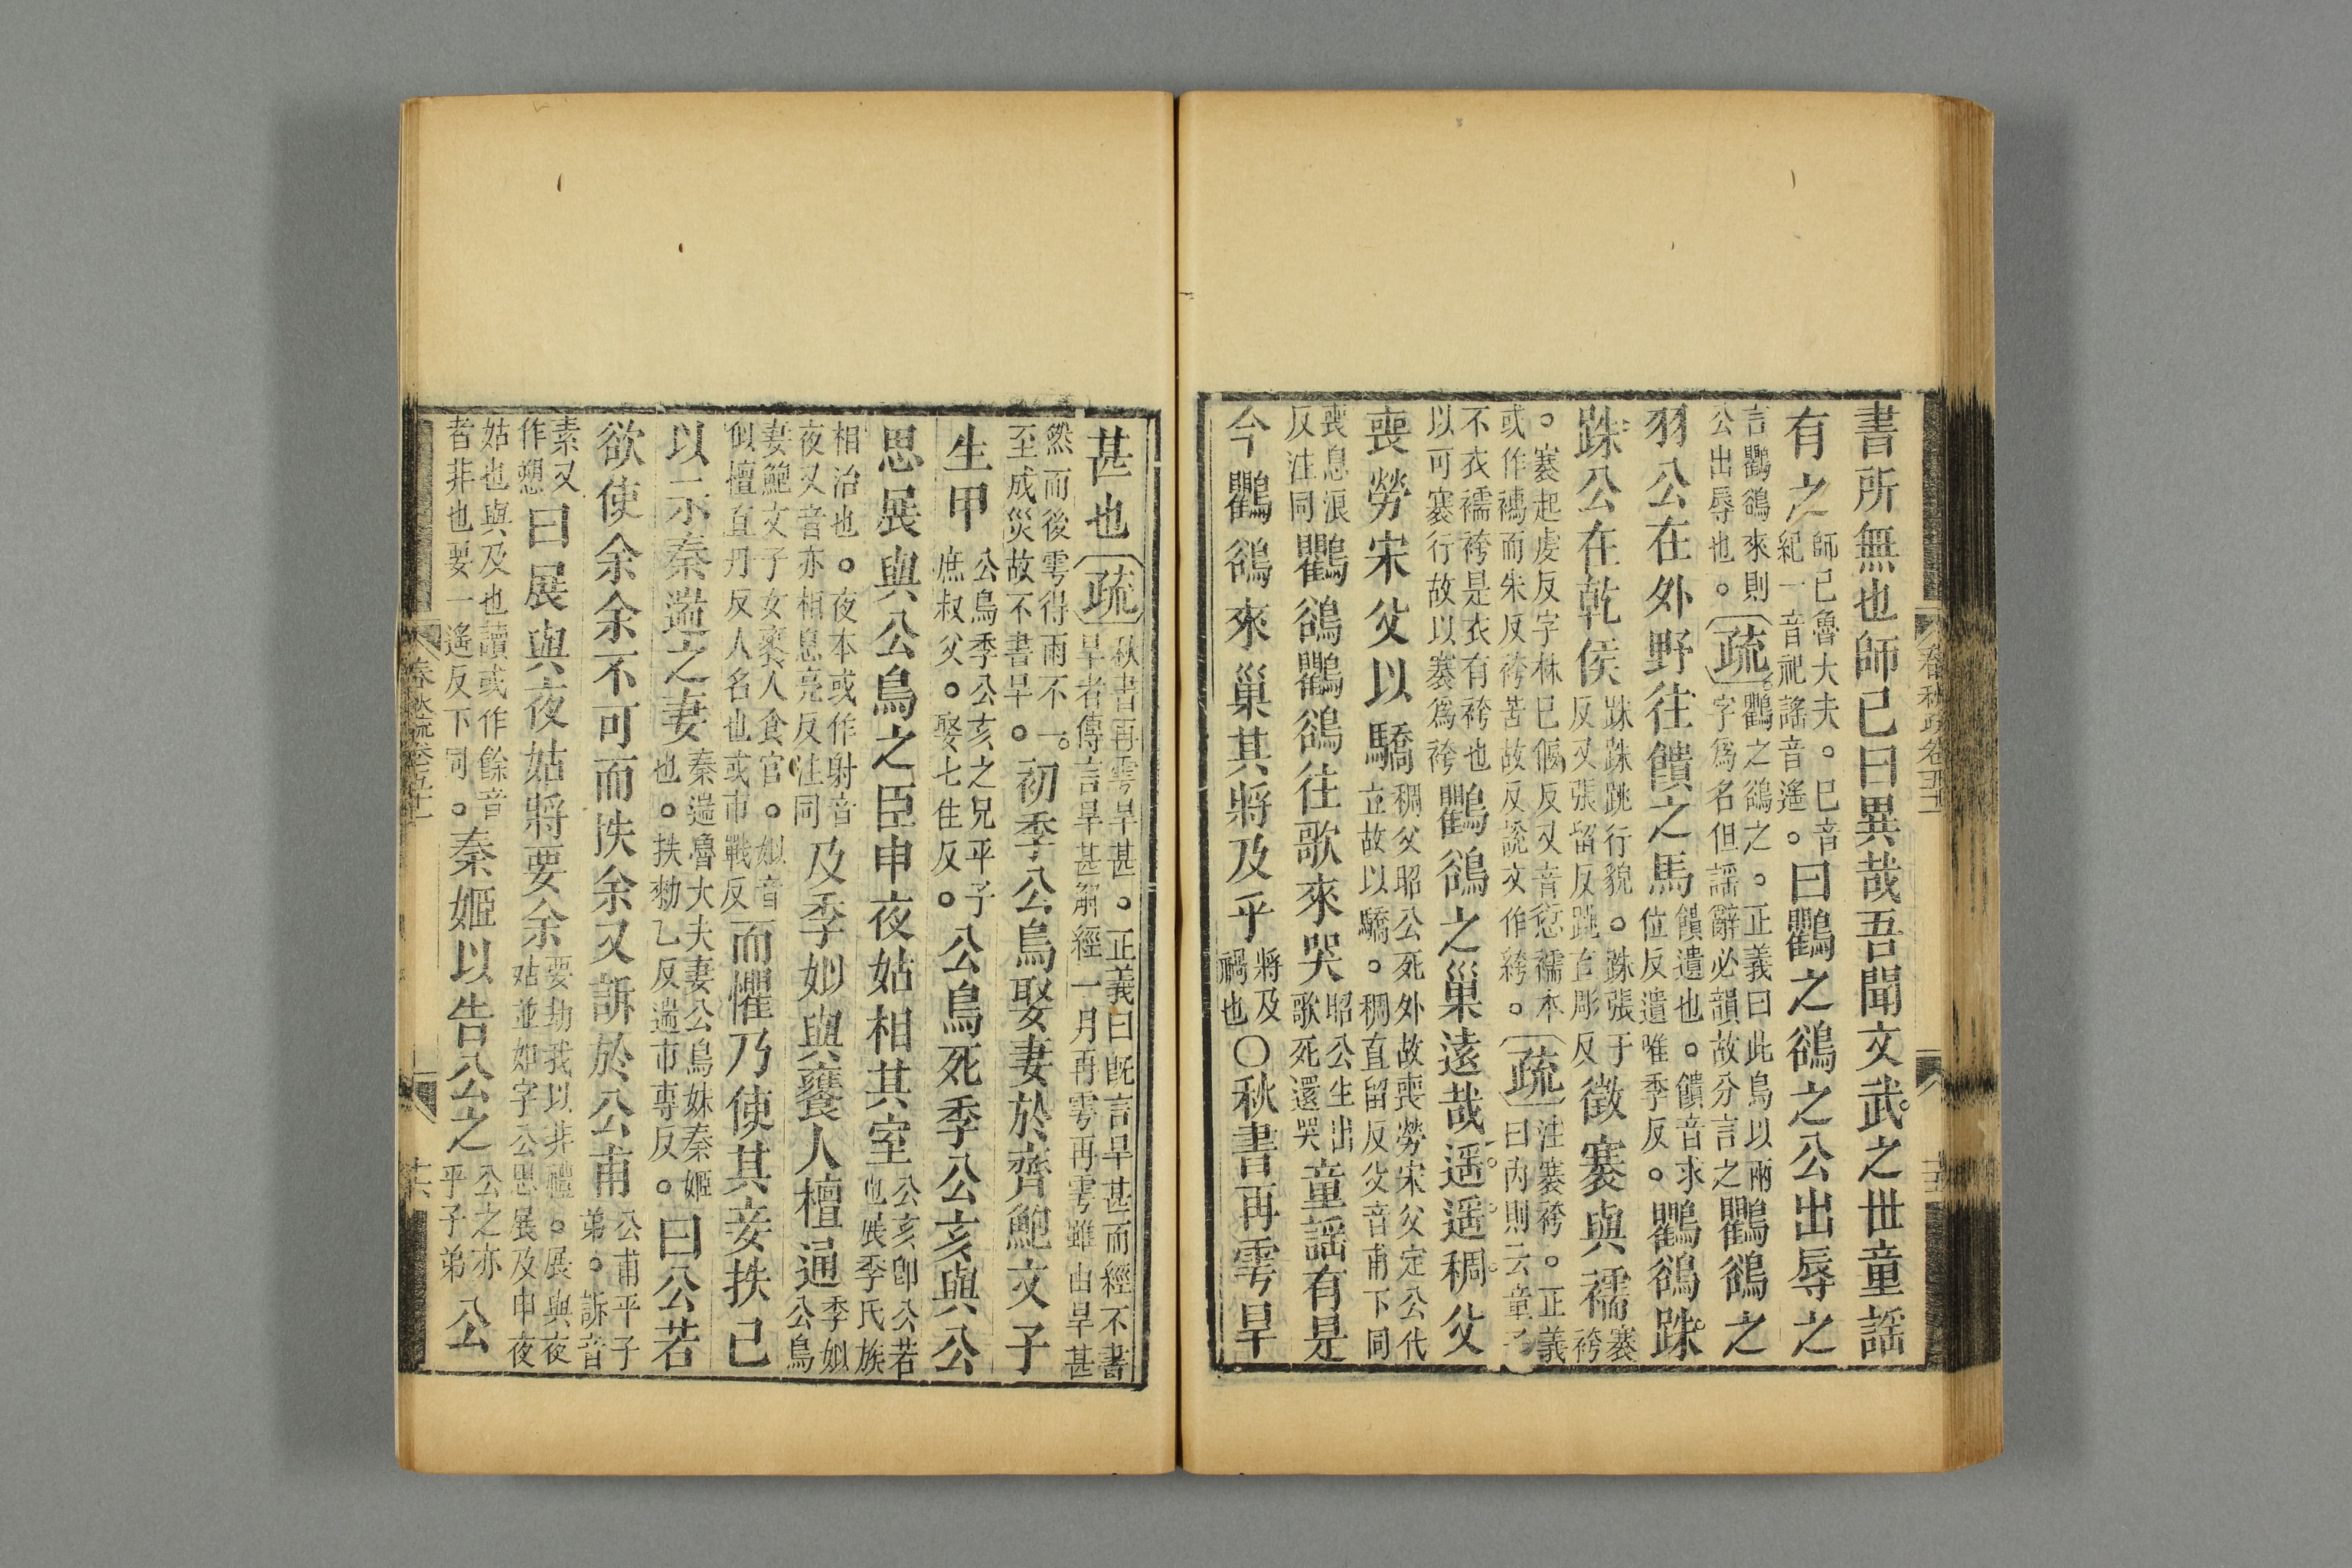 書所無也師己曰異哉吾聞文武之世童謡
有之師己魯大夫。己音紀一音祀謠音遙。曰鸜之鵒之公出辱之
言鸜鵒來則公出辱也。疏鸜之鵒之。正義曰此鳥以兩字爲名但謡辭必韻故分言之鸜鵒之
羽公在外野往饋之馬饋遺也。饋音求位反遺唯季反。鸜鵒跦
跦公在乾侯跦跦跳行貌。跦張于反又張留反跳直彫反徵褰與襦褰袴
。褰起虔反字林己偃反又音愆襦本或作襦而朱反袴苦故反說文作絝。疏注褰袴。正義曰內則云童子
不衣襦袴是衣有袴也以可褰行故以褰爲袴鸜鵒之巢遠哉遥遥稠父
喪勞宋父以驕稠父昭公死外故喪勞宋父定公代立故以驕。稠直留反父音甫下同
喪息浪反注同鸜鵒鸜鵒往歌來哭昭公生出歌死還哭童謡有是
今鸜鵒來巢其將及乎將及禍也〇秋書再雩旱
春秋疏卷五十一
十五
甚也疏秋書再雩旱甚。正義曰旣言旱甚而經不書旱者傳言旱甚解經一月再雩再雩雖由旱甚
然而後雩得雨不至成災故不書旱。初季公鳥娶妻於齊鮑文子
生甲公鳥季公亥之兄平子庶叔父。娶七住反。公鳥死季公亥與公
思展與公鳥之臣申夜姑相其室公亥卽公若也展季氏族
相治也。夜本或作射音夜又音亦相息亮反注同及季姒與饔人檀通季姒公鳥
妻鮑文子女饔人食官。姒音似檀直丹反人名也或市戰反而懼乃使其妾抶己
以示秦遄之妻秦遄魯大夫妻公鳥妹秦姬也。抶勑乙反遄市專反。曰公若
欲使余余不可而抶余又訴於公甫公甫平子弟。訴音
素又作愬曰展與夜姑將要余要劫我以非禮。展與夜姑並如字公思展及申夜
姑也與及也讀或作餘音者非也要一遙反下同。秦姬以告公之公之亦平子弟公
春秋疏卷五十一
十六